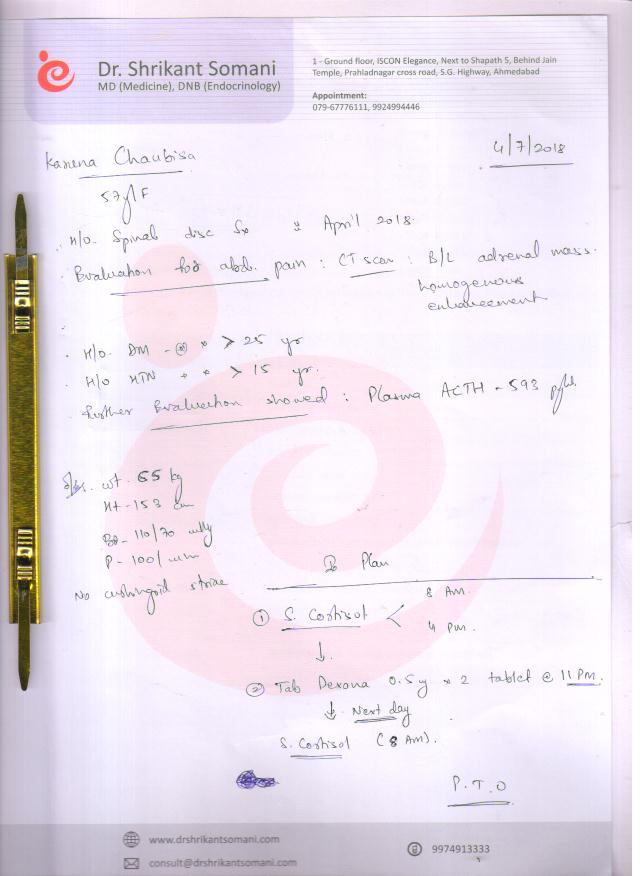 Dr. Shrikant Somani
MD (Medicine), DNB (Endocrinology)
1 - Ground floor, ISCON Elegance, Next to Shapath 5, Behind Jain
Temple, Prahladnagar cross road, S.G. Highway, Ahmedabad
Appointment:
079-67776111, 9924994446
4/7/2018
Chaubisa
57y/F
H/O. Spinal disc Sx April 2018.
Evaluation for abd. pain : CT scan : B/L adrenal mass.
homogenous
enhancement
H/O. DM - > 25 yr
H/O HTN > 15 yr.
Further Evaluation showed : Plasma ACTH - 593
wt. 65 kg
Ht - 153 cm
BP - 110/70
P - 100/
No cushingoid striae
Plan
① S. Cortisol < 8 AM.
4 PM.
↓
② Tab Dexona 0.5 x 2 tablet @ 11 PM.
↓ Next day
S. Cortisol (8 AM).
P.T.O
www.drshrikantsomani.com
consult@drshrikantsomani.com
9974913333